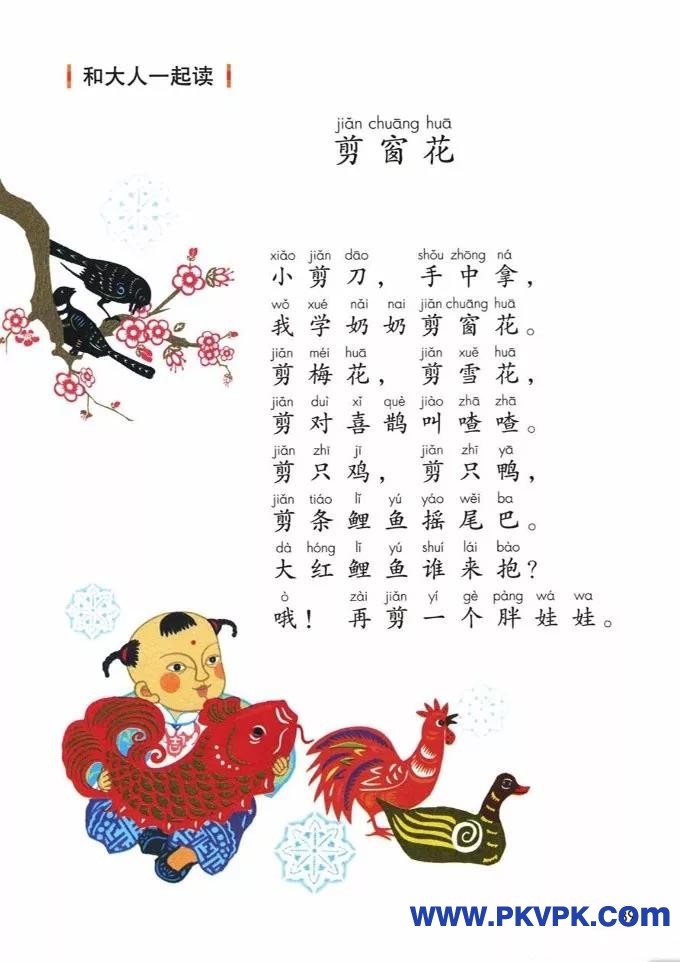 和大人一起读
jiǎn chuāng huā
剪窗花
xiǎo jiǎn dāo shǒu zhōng ná
小剪刀，手中拿，
wǒ xué nǎi nai jiǎn chuāng huā
我学奶奶剪窗花。
jiǎn méi huā jiǎn xuě huā
剪梅花，剪雪花，
jiǎn duì xǐ què jiào zhā zhā
剪对喜鹊叫喳喳。
jiǎn zhī jī jiǎn zhī yā
剪只鸡，剪只鸭，
jiǎn tiáo lǐ yú yáo wěi ba
剪条鲤鱼摇尾巴。
dà hóng lǐ yú shuí lái bào
大红鲤鱼谁来抱？
ò zài jiǎn yí gè pàng wá wa
哦！再剪一个胖娃娃。
www.PKVPK.com